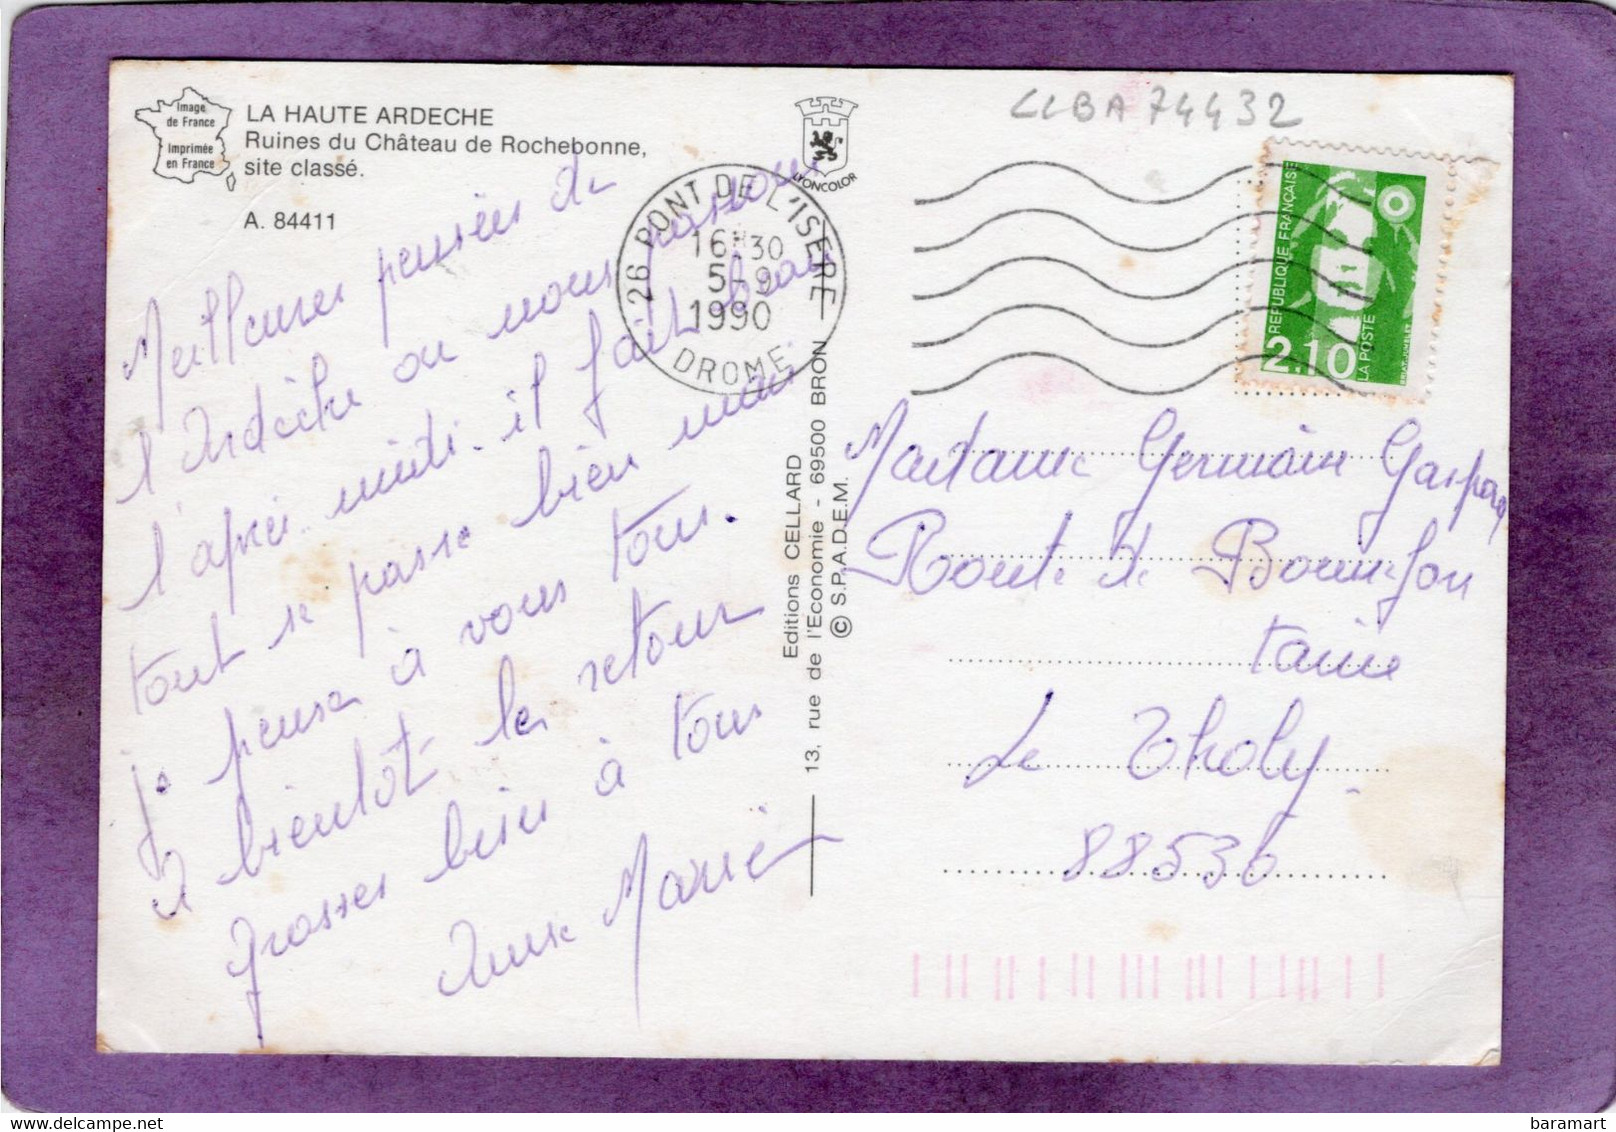 Image
de France
Imprimée
en France
LA HAUTE ARDECHE
Ruines du Château de Rochebonne,
site classé.
A. 84411
LYONCOLOR
CLBA 74432
26 PONT DE L'ISERE
16H30
5-9
1990
DROME
REPUBLIQUE FRANÇAISE
2.10
LA POSTE
BRIAT-JUMELET
Meilleures pensées de
l'Ardèche ou nous passons
l'après-midi. il fait beau
tout se passe bien mais
je pense à vous tous.
A bientôt le retour
Grosses bises à tous
Anne Marie
Editions CELLARD
13, rue de l'Economie - 69500 BRON
© S.P.A.D.E.M.
Madame Germain Gaspard
Route de Bonnefon
taine
Le Tholy.
88530
baramart